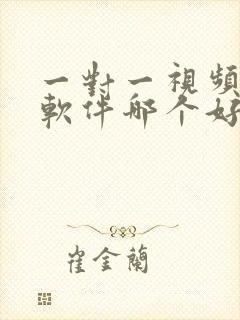 一對一視頻
軟件哪个好
崔金蘭